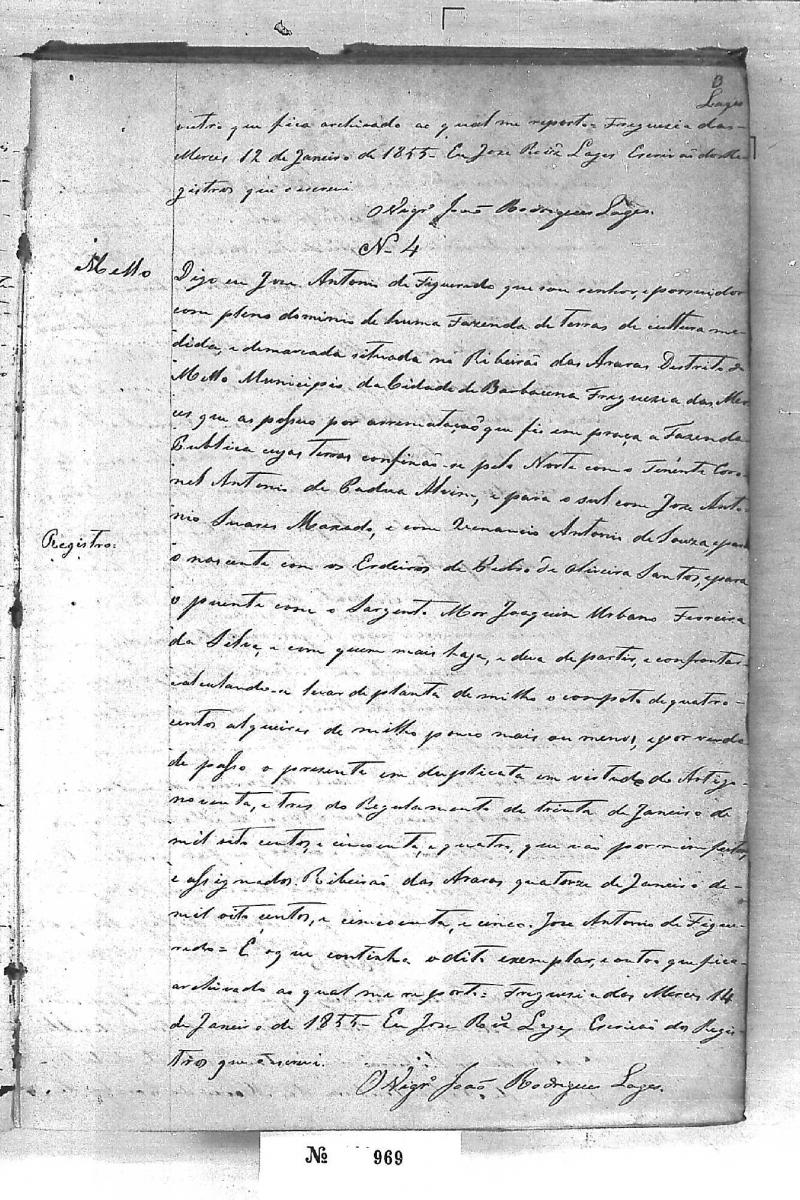 Lages
outro que fica archivado ao qual me reporto = Freguezia das
Merces 12 de Janeiro de 1855 - Eu Joze Roiz Lages Escrivão do Re-
gistros que escrevi
O Vigr.º João Rodrigues Lages.
N. 4
Mello
Digo eu Joze Antonio de Figueredo que sou senhor, e possuidor
com pleno dominio de huma Fazenda de terras de cultura me-
dida, e demarcada situada no Ribeirão das Araras Districto do
Mello Municipio da Cidade de Barbacena Freguezia das Mer-
ces que as possuo por arrematação que fiz em praça a Fazenda
Publica cujas terras confinão-se pelo Norte com o Tenente Coro-
nel Antonio de Padua Alvim, e para o sul com Joze Anto-
nio Suares Maxado, e com Venancio Antonio de Souza, e para
Registro =
o nascente com os Erdeiros de Pedro de Oliveira Santos, e para
o puente com o Sargento Mor Joaquim Urbano Ferreira
da Silva, e com quem mais haja, e deva de partir, e confrontar
calculando-se levar de planta de milho o computo de quatro-
centos alqueires de milho pouco mais ou menos, e por verda-
de passo o presente em duplicata em vertude do Artigo
noventa, e tres do Regulamento de trinta de Janeiro de
mil oito centos, e cincoenta, e quatro, que vai por mim feito,
e assignados. Ribeirão das Araras quatorze de Janeiro de
mil oito centos, e cincoenta, e cinco. Joze Antonio de Figue-
redo = É o que continha o dito exemplar, e outro que fica
archivado ao qual me reporto = Freguezia das Merces 14
de Janeiro de 1855 - Eu Joze Roiz Lages Escrivão dos Regis-
tros que escrevi.
O Vigr.º João Rodrigues Lages.
Nº 969